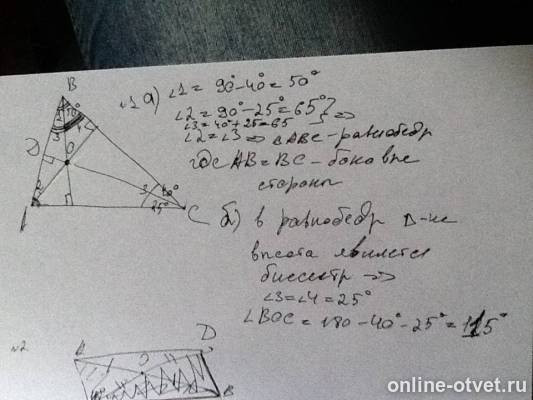 B
N1 a) ∠1 = 90°-40° = 50°
∠2 = 90°-25° = 65° } =>
∠3 = 40°+25 = 65
∠2 = ∠3 => ΔABC - равнобедр
где AB = BC - боковые
стороны
D
O
C
40°
25°
б) в равнобедр Δ-ке
высота является
биссектр =>
∠3 = ∠4 = 25°
∠BOC = 180-40°-25° = 115°
N2
D
O
B
online-otvet.ru